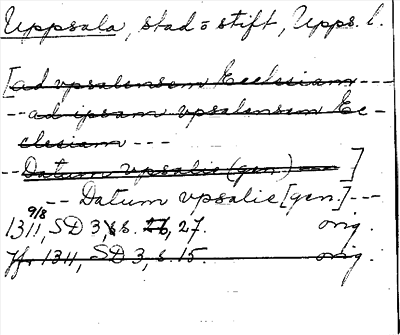 Uppsala, stad o stift, Upps. l.
[ad vpsalensem Ecclesiam ---
-- ad ipsam vpsalensem Ec-
clesiam ---
-- Datum vpsalie (gen.) ---]
-- Datum vpsalie [gen.] ---
9/8
1311, SD 3, s. 26, 27. orig.
Jfr 1311, SD 3, s. 15. orig.